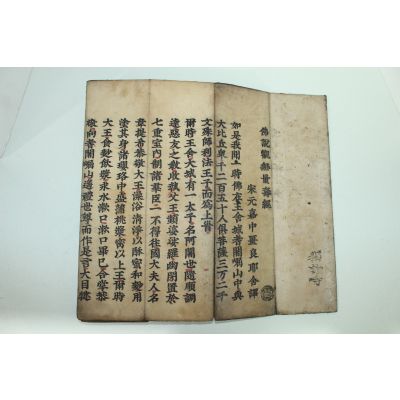 佛說觀無量壽經
宋元嘉中畺良耶舍譯
如是我聞一時佛在王舍城耆闍崛山中與
大比丘衆千二百五十人俱菩薩三万二千
文殊師利法王子而爲上首
爾時王舍大城有一太子名阿闍世隨順調
達惡友之敎收執父王頻婆娑羅幽閉置於
七重室內制諸羣臣一不得往國大夫人名
韋提希恭敬大王澡浴淸淨以酥蜜和麨用
塗其身諸瓔珞中盛蒲桃漿密以上王爾時
大王食麨飮漿求水漱口漱口畢已合掌恭
敬向耆闍崛山遙禮世尊而作是言大目揵